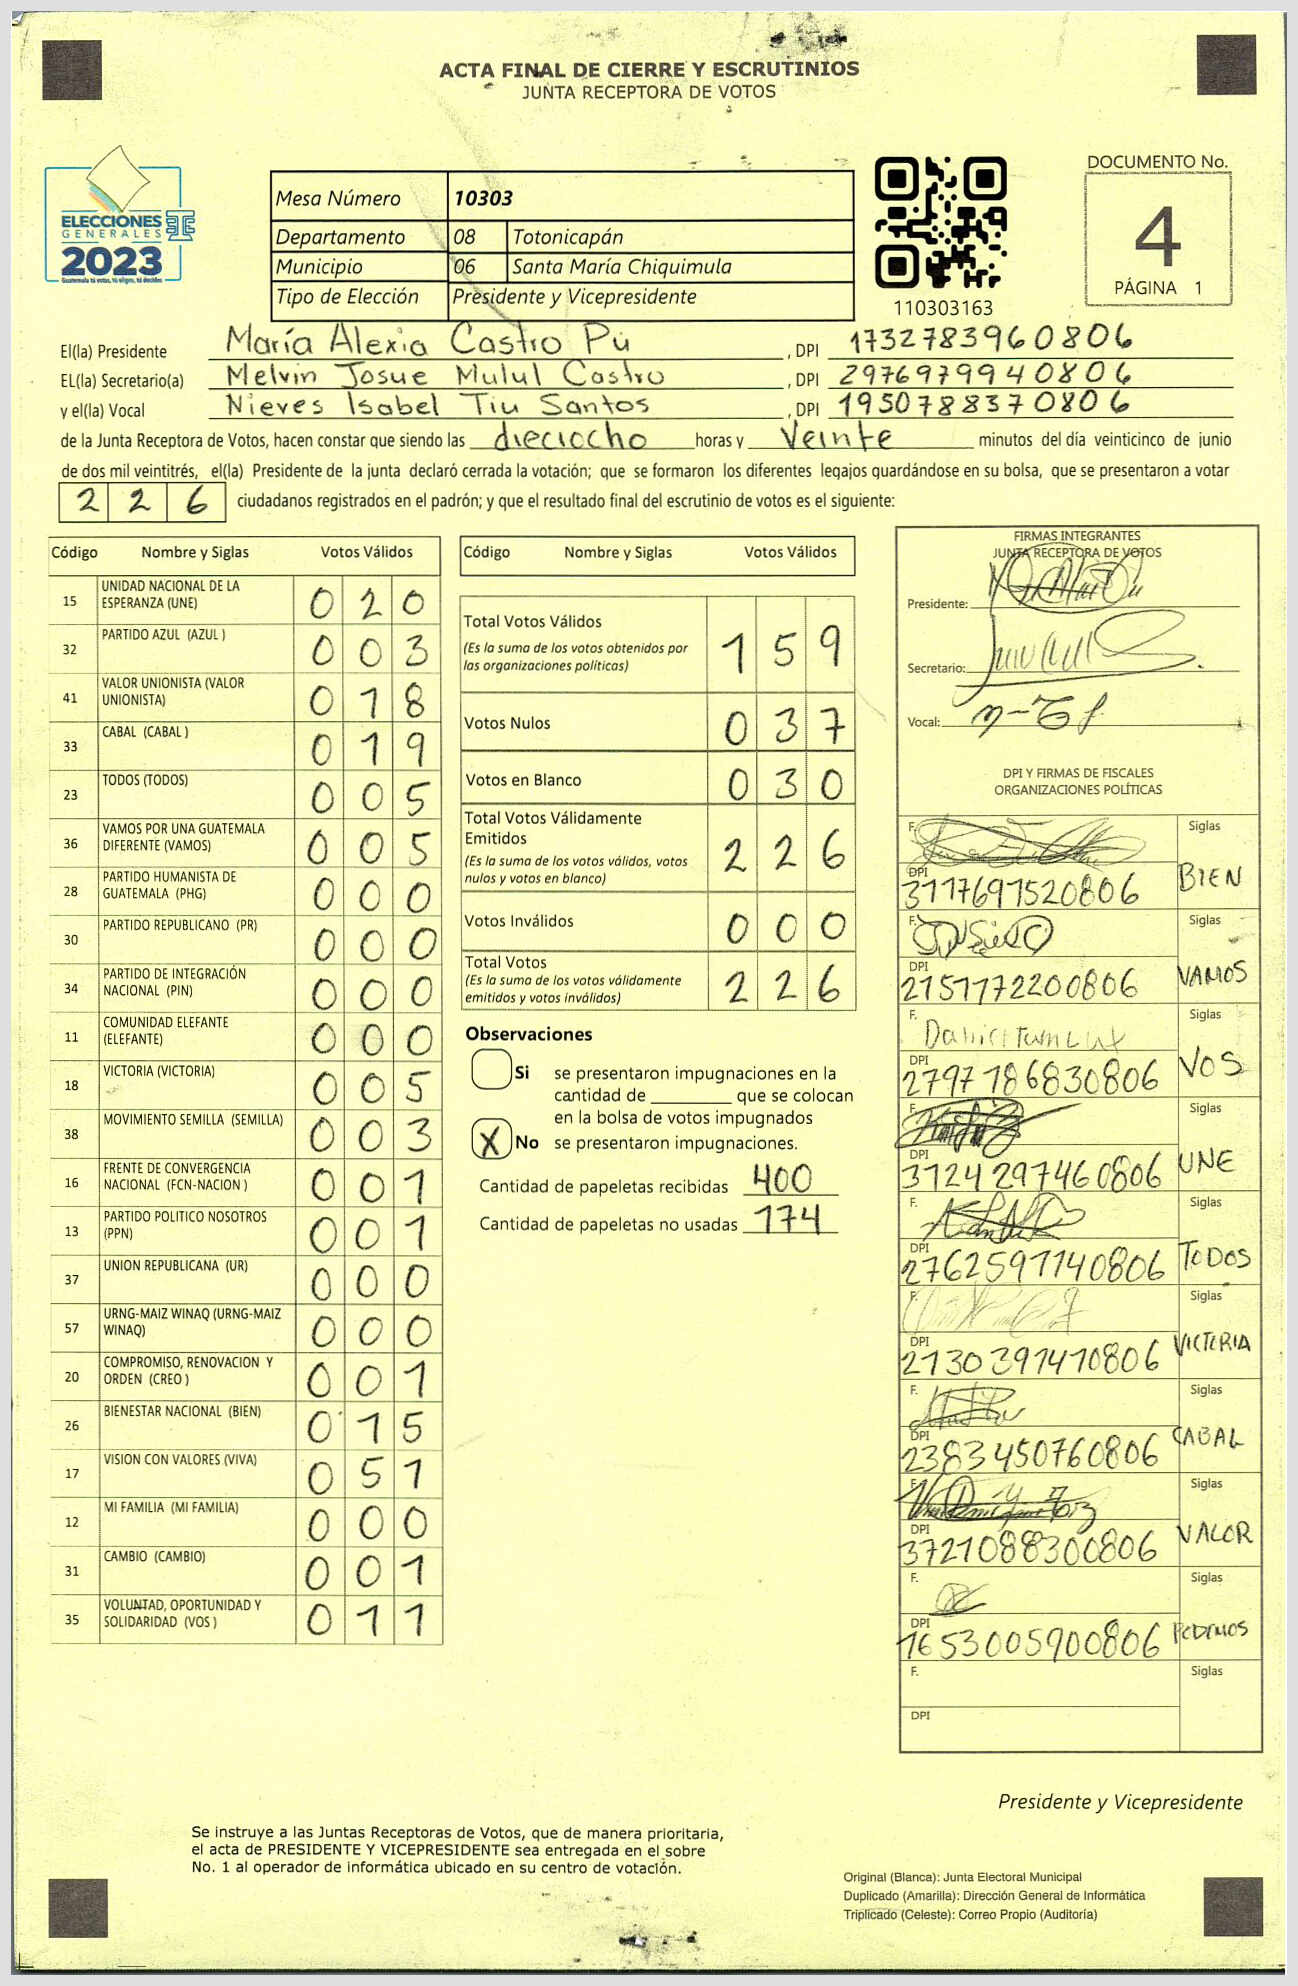 ACTA FINAL DE CIERRE Y ESCRUTINIOS
JUNTA RECEPTORA DE VOTOS
ELECCIONES
GENERALES
2023
Guatemala tú votas, tú eliges, tú decides
Mesa Número 10303
Departamento 08 Totonicapán
Municipio 06 Santa María Chiquimula
Tipo de Elección Presidente y Vicepresidente
110303163
DOCUMENTO No.
4
PÁGINA 1
El(la) Presidente María Alexia Castro Pú , DPI 1732783960806
EL(la) Secretario(a) Melvin Josue Mulul Castro , DPI 2976979940806
y el(la) Vocal Nieves Isabel Tiu Santos , DPI 1950788370806
de la Junta Receptora de Votos, hacen constar que siendo las dieciocho horas y veinte minutos del día veinticinco de junio
de dos mil veintitrés, el(la) Presidente de la junta declaró cerrada la votación; que se formaron los diferentes legajos guardándose en su bolsa, que se presentaron a votar
226 ciudadanos registrados en el padrón; y que el resultado final del escrutinio de votos es el siguiente:
Código Nombre y Siglas Votos Válidos
15 UNIDAD NACIONAL DE LA ESPERANZA (UNE) 020
32 PARTIDO AZUL (AZUL ) 003
41 VALOR UNIONISTA (VALOR UNIONISTA) 018
33 CABAL (CABAL ) 019
23 TODOS (TODOS) 005
36 VAMOS POR UNA GUATEMALA DIFERENTE (VAMOS) 005
28 PARTIDO HUMANISTA DE GUATEMALA (PHG) 000
30 PARTIDO REPUBLICANO (PR) 000
34 PARTIDO DE INTEGRACIÓN NACIONAL (PIN) 000
11 COMUNIDAD ELEFANTE (ELEFANTE) 000
18 VICTORIA (VICTORIA) 005
38 MOVIMIENTO SEMILLA (SEMILLA) 003
16 FRENTE DE CONVERGENCIA NACIONAL (FCN-NACION ) 001
13 PARTIDO POLITICO NOSOTROS (PPN) 001
37 UNION REPUBLICANA (UR) 000
57 URNG-MAIZ WINAQ (URNG-MAIZ WINAQ) 000
20 COMPROMISO, RENOVACION Y ORDEN (CREO ) 001
26 BIENESTAR NACIONAL (BIEN) 015
17 VISION CON VALORES (VIVA) 051
12 MI FAMILIA (MI FAMILIA) 000
31 CAMBIO (CAMBIO) 001
35 VOLUNTAD, OPORTUNIDAD Y SOLIDARIDAD (VOS ) 011
Código Nombre y Siglas Votos Válidos
Total Votos Válidos 159
(Es la suma de los votos obtenidos por
las organizaciones políticas)
Votos Nulos 037
Votos en Blanco 030
Total Votos Válidamente
Emitidos 226
(Es la suma de los votos válidos, votos
nulos y votos en blanco)
Votos Inválidos 000
Total Votos 226
(Es la suma de los votos válidamente
emitidos y votos inválidos)
Observaciones
Si se presentaron impugnaciones en la
cantidad de ________ que se colocan
en la bolsa de votos impugnados
X No se presentaron impugnaciones.
Cantidad de papeletas recibidas 400
Cantidad de papeletas no usadas 174
FIRMAS INTEGRANTES
JUNTA RECEPTORA DE VOTOS
Presidente:
Secretario:
Vocal:
DPI Y FIRMAS DE FISCALES
ORGANIZACIONES POLÍTICAS
F. Siglas
DPI 3117691520806 BIEN
F. Siglas
DPI 2151772200806 VAMOS
F. Siglas
DPI 2797786830806 VOS
F. Siglas
DPI 3124297460806 UNE
F. Siglas
DPI 2762597140806 TODOS
F. Siglas
DPI 2130391410806 VICTORIA
F. Siglas
DPI 2383450760806 CABAL
F. Siglas
DPI 3721088300806 VALOR
F. Siglas
DPI 1653005900806 PODEMOS
F. Siglas
DPI
Presidente y Vicepresidente
Se instruye a las Juntas Receptoras de Votos, que de manera prioritaria,
el acta de PRESIDENTE Y VICEPRESIDENTE sea entregada en el sobre
No. 1 al operador de informática ubicado en su centro de votación.
Original (Blanca): Junta Electoral Municipal
Duplicado (Amarilla): Dirección General de Informática
Triplicado (Celeste): Correo Propio (Auditoría)